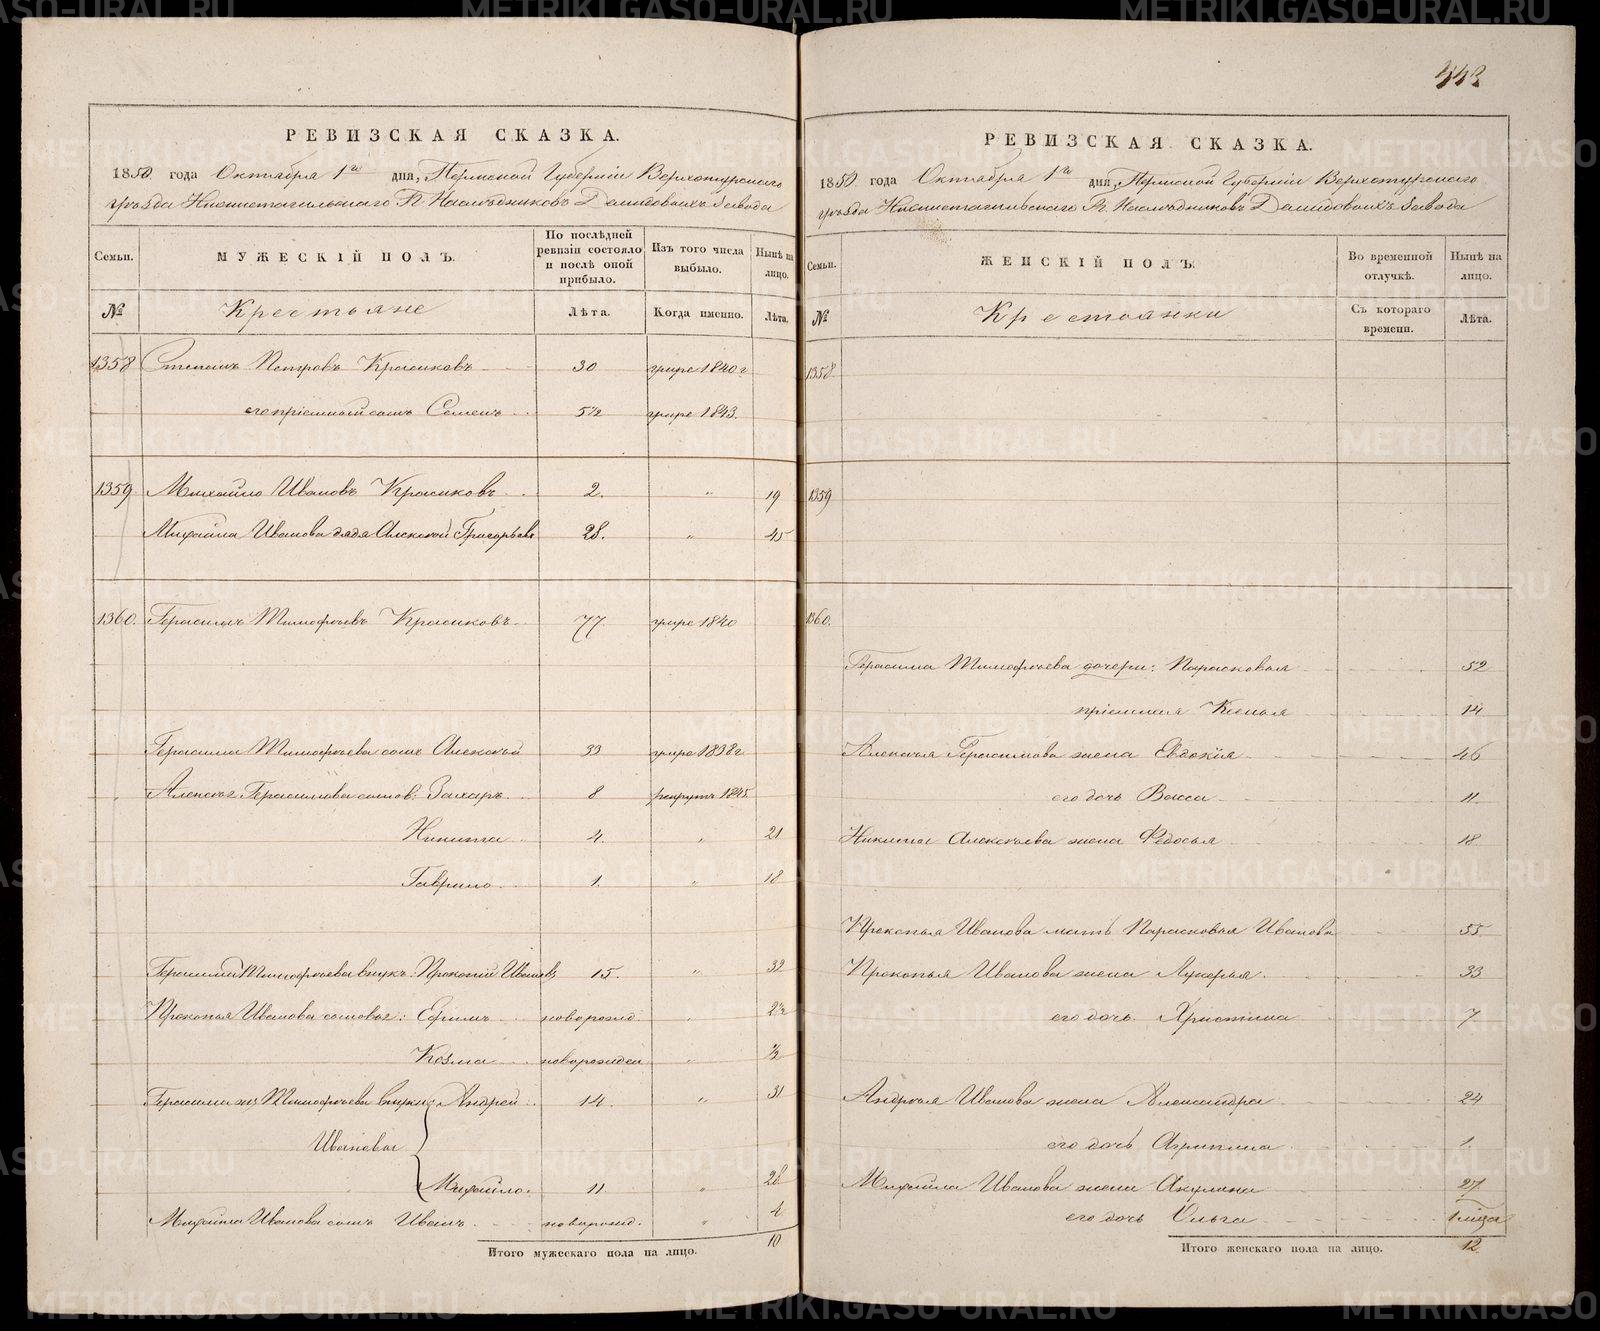 443
РЕВИЗСКАЯ СКАЗКА.
1850 года Октября 1го дня, Пермской Губернiи Верхотурскаго
уѣзда Нижнетагильскаго Гг. Наслѣдниковъ Демидовыхъ Завода
Семьи. МУЖЕСКIЙ ПОЛЪ. По послѣдней ревизiи состояло и послѣ оной прибыло. Изъ того числа выбыло. Нынѣ на лицо.
№ Крестьяне Лѣта. Когда именно. Лѣта.
1358 Степанъ Петровъ Красиковъ 30 умре 1840 г
его прiемный сынъ Семенъ 5½ умре 1843.
1359 Михайло Ивановъ Красиковъ 2. " 19
Михайла Иванова дядя Алексей Григорьевъ 28. " 45
1360. Герасимъ Тимофѣевъ Красиковъ 77 умре 1840
Герасима Тимофѣева сынъ Алексѣй 33 умре 1838 г
Алексѣя Герасимова сынов: Захаръ 8 рекрутъ 1845.
Никита 4. " 21
Гаврило 1. " 18
Герасима Тимофѣева внукъ Прокопiй Ивановъ 15. " 32
Прокопья Иванова сыновья: Ефимъ новорожд. " 2½
Козма новорожден " ½
Герасима Тимофѣева внуки Андрей 14. " 31
Ивановы
Михайло. 11. " 28
Михайла Иванова сынъ Иванъ новорожд. " 4
Итого мужескаго пола на лицо. 10
РЕВИЗСКАЯ СКАЗКА.
1850 года Октября 1го дня, Пермской Губернiи Верхотурскаго
уѣзда Нижнетагильскаго Гг. Наслѣдниковъ Демидовыхъ Завода
Семьи. ЖЕНСКIЙ ПОЛЪ. Во временной отлучкѣ. Нынѣ на лицо.
№ Крестьянки Съ котораго времени. Лѣта.
1358.
1359
1360.
Герасима Тимофѣева дочери: Парасковья 52
прiемная Ксенья 14
Алексѣя Герасимова жена Евдокiя 46
его дочь Васса 11.
Никиты Алексѣева жена Федосья 18
Прокопья Иванова мать Парасковья Иванова 55.
Прокопья Иванова жена Лукерья. 33
его дочь Христина 7
Андрѣя Иванова жена Александра 24
его дочь Агрипина 1.
Михайла Иванова жена Акулина 27
его дочь Ольга 1 мѣся
Итого женскаго пола на лицо. 12.
METRIKI.GASO-URAL.RU